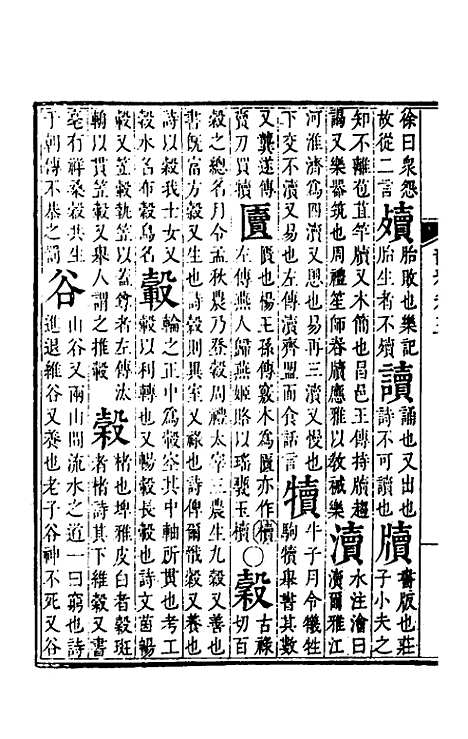 徐曰衆怨故從二言 殰 胎敗也樂記胎生者不殰 讀 誦也又出也詩不可讀也 牘 書版也莊子小夫之
知不離苞苴竿牘又木簡也昌邑王傳持牘趨謁又樂器筑也周禮笙師舂牘應雅以敎祴樂 瀆 水注澮曰瀆爾雅江
河淮濟爲四瀆又思也易再三瀆又慢也下交不瀆又易也左傳瀆齊盟而食話言 犢 牛子月令犧牲駒犢舉書其數
又龔遂傳賣刀買犢 匵 匱也楊王孫傳窾木爲匵亦作櫝左傳燕人歸燕姬賂以瑤甕玉櫝 〇 穀 古祿切百
穀之總名月令孟秋農乃登穀周禮太宰三農生九穀又善也書旣富方穀又生也詩穀則異室又祿也詩俾爾戩穀又養也
詩以穀我士女又穀水名布穀鳥名 轂 輪之正中爲轂空其中軸所貫也考工轂以利轉也又暢轂長轂也詩文茵暢
轂又笠轂執笠以蓋尊者左傳汰輈以貫笠轂又舉人謂之推轂 榖 楮也埤雅皮白者榖斑者楮詩其下維榖又書
亳有祥桑榖共生于朝傳不恭之罰 谷 山谷又兩山間流水之道一曰窮也詩進退維谷又養也老子谷神不死又谷